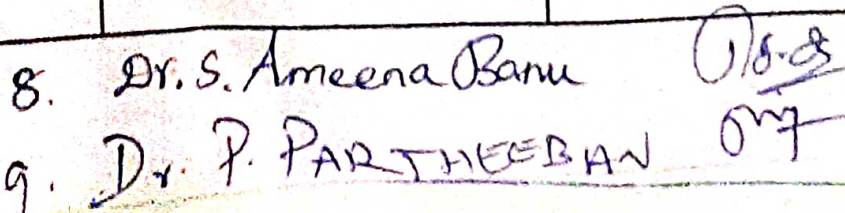 8. Dr. S. Ameena Banu
9. Dr. P. PARTHEEBAN